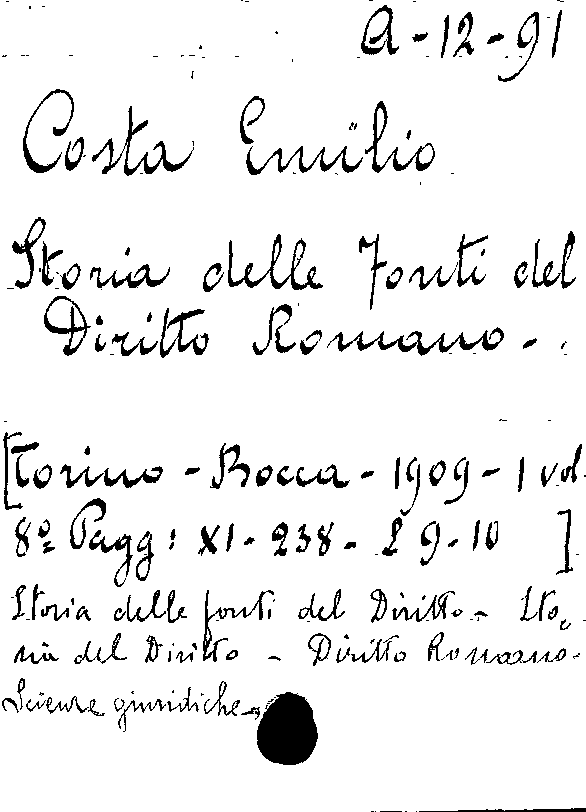 A-12-91
Costa Emilio
Storia delle Fonti del
Diritto Romano-.
[Torino - Bocca - 1909 - 1 vol.
8º Pagg: XI - 238 - £ 9-10 ]
Storia delle fonti del Diritto - Sto-
ria del Diritto - Diritto Romano-
Scienze giuridiche-